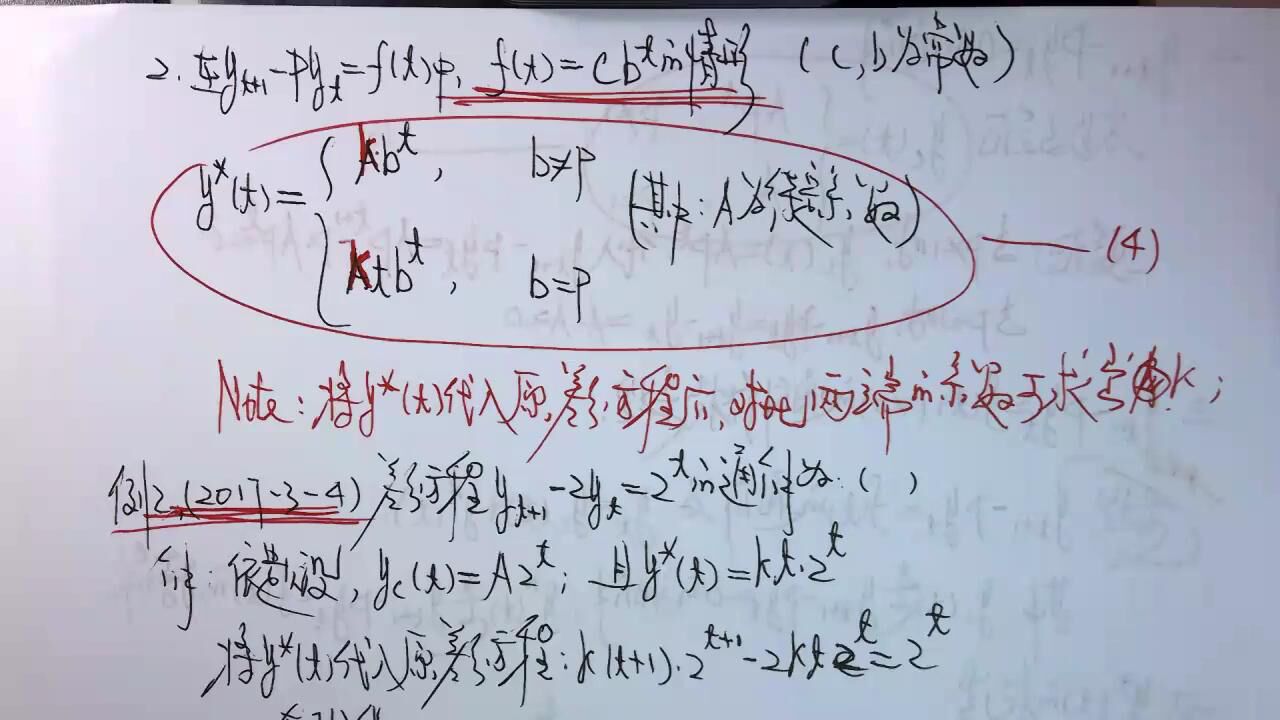 2. 在y_{t+1}-py_t=f(t)中, f(t)=Cb^t的情形 (C,b为常数)
y*(t)={ kb^t, b≠p
ktb^t, b=p
(其中:A为待定系数)
(4)
Note: 将y*(t)代入原差分方程后,对比两端的系数可求字母k;
例2.(2017-3-4) 差分方程y_{t+1}-2y_t=2^t的通解为( )
解: 依题设, y_c(t)=A2^t; 且y*(t)=kt·2^t
将y*(t)代入原差分方程: k(t+1)·2^{t+1}-2kt2^t=2^t